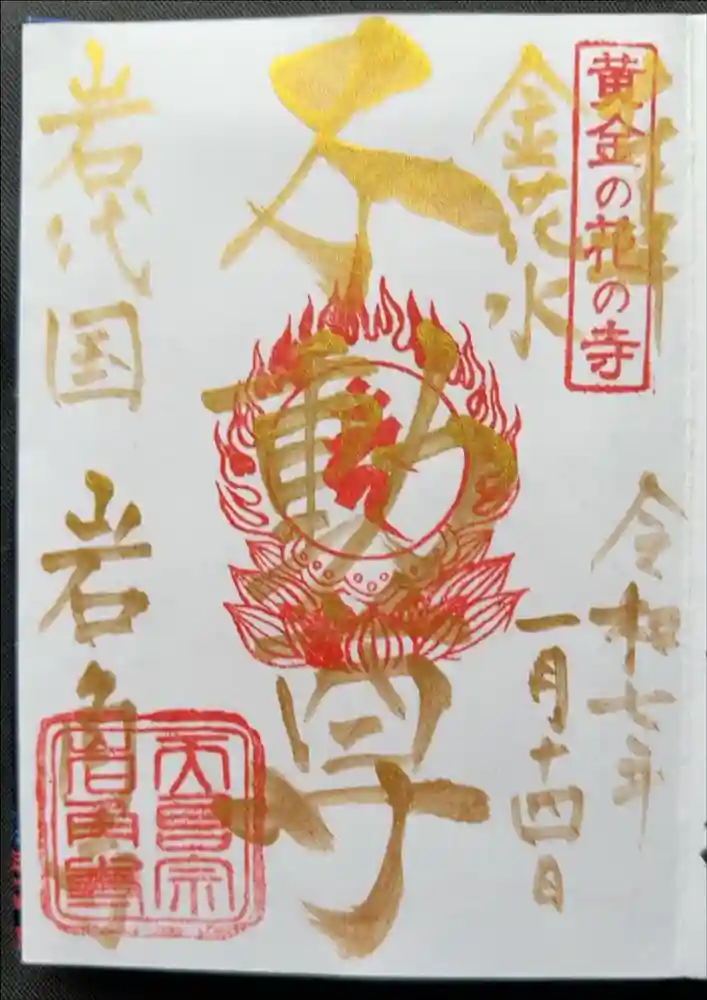 奉拝
黄金の花の寺
令和七年
一月十四日
金花水
不動尊
岩代国
岩角寺
天台宗
岩角寺